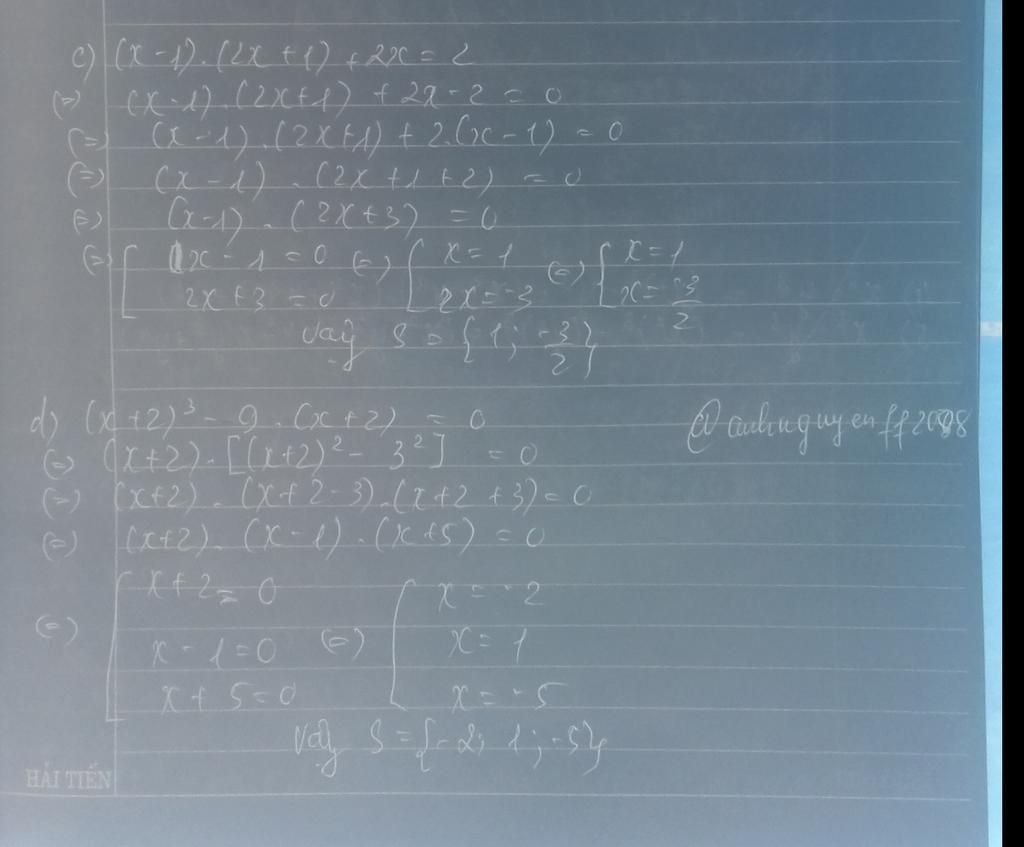 c) (x-1).(2x+1)+2x=2
(=) (x-1).(2x+1)+2x-2=0
(=) (x-1).(2x+1)+2.(x-1)=0
(=) (x-1).(2x+1+2)=0
(=) (x-1).(2x+3)=0
(=) [ x-1=0 (=) [ x=1 (=) [ x=1
2x+3=0 2x=-3 x=-3/2
Vậy S={1; -3/2}
d) (x+2)³-9.(x+2)=0 @anhnguyenff2008
(=) (x+2).[(x+2)²-3²]=0
(=) (x+2).(x+2-3).(x+2+3)=0
(=) (x+2).(x-1).(x+5)=0
(=) [ x+2=0 (=) [ x=-2
x-1=0 x=1
x+5=0 x=-5
Vậy S={-2; 1; -5}
HẢI TIẾN